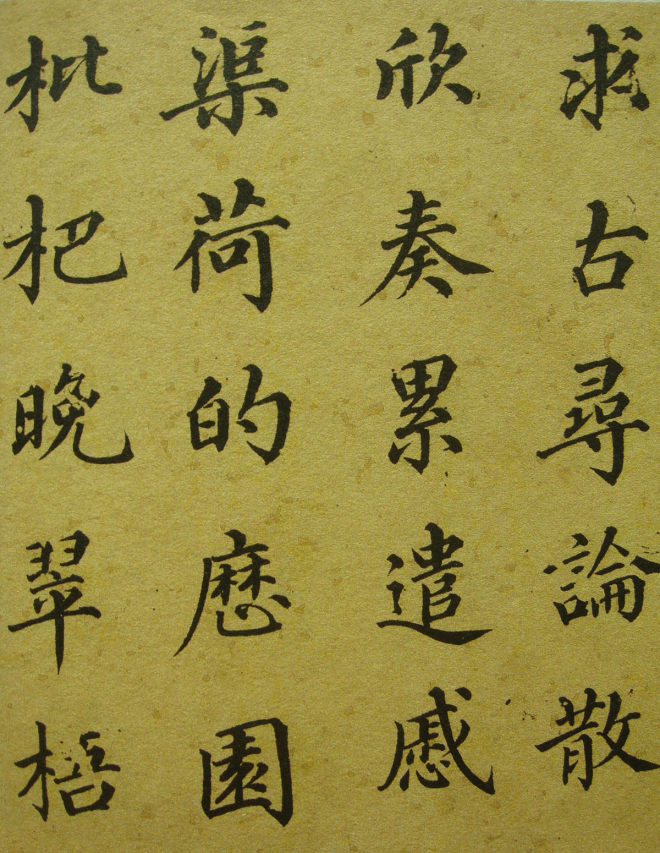 求古尋論散
欣奏累遣慼
渠荷的歷園
枇杷晚翠梧